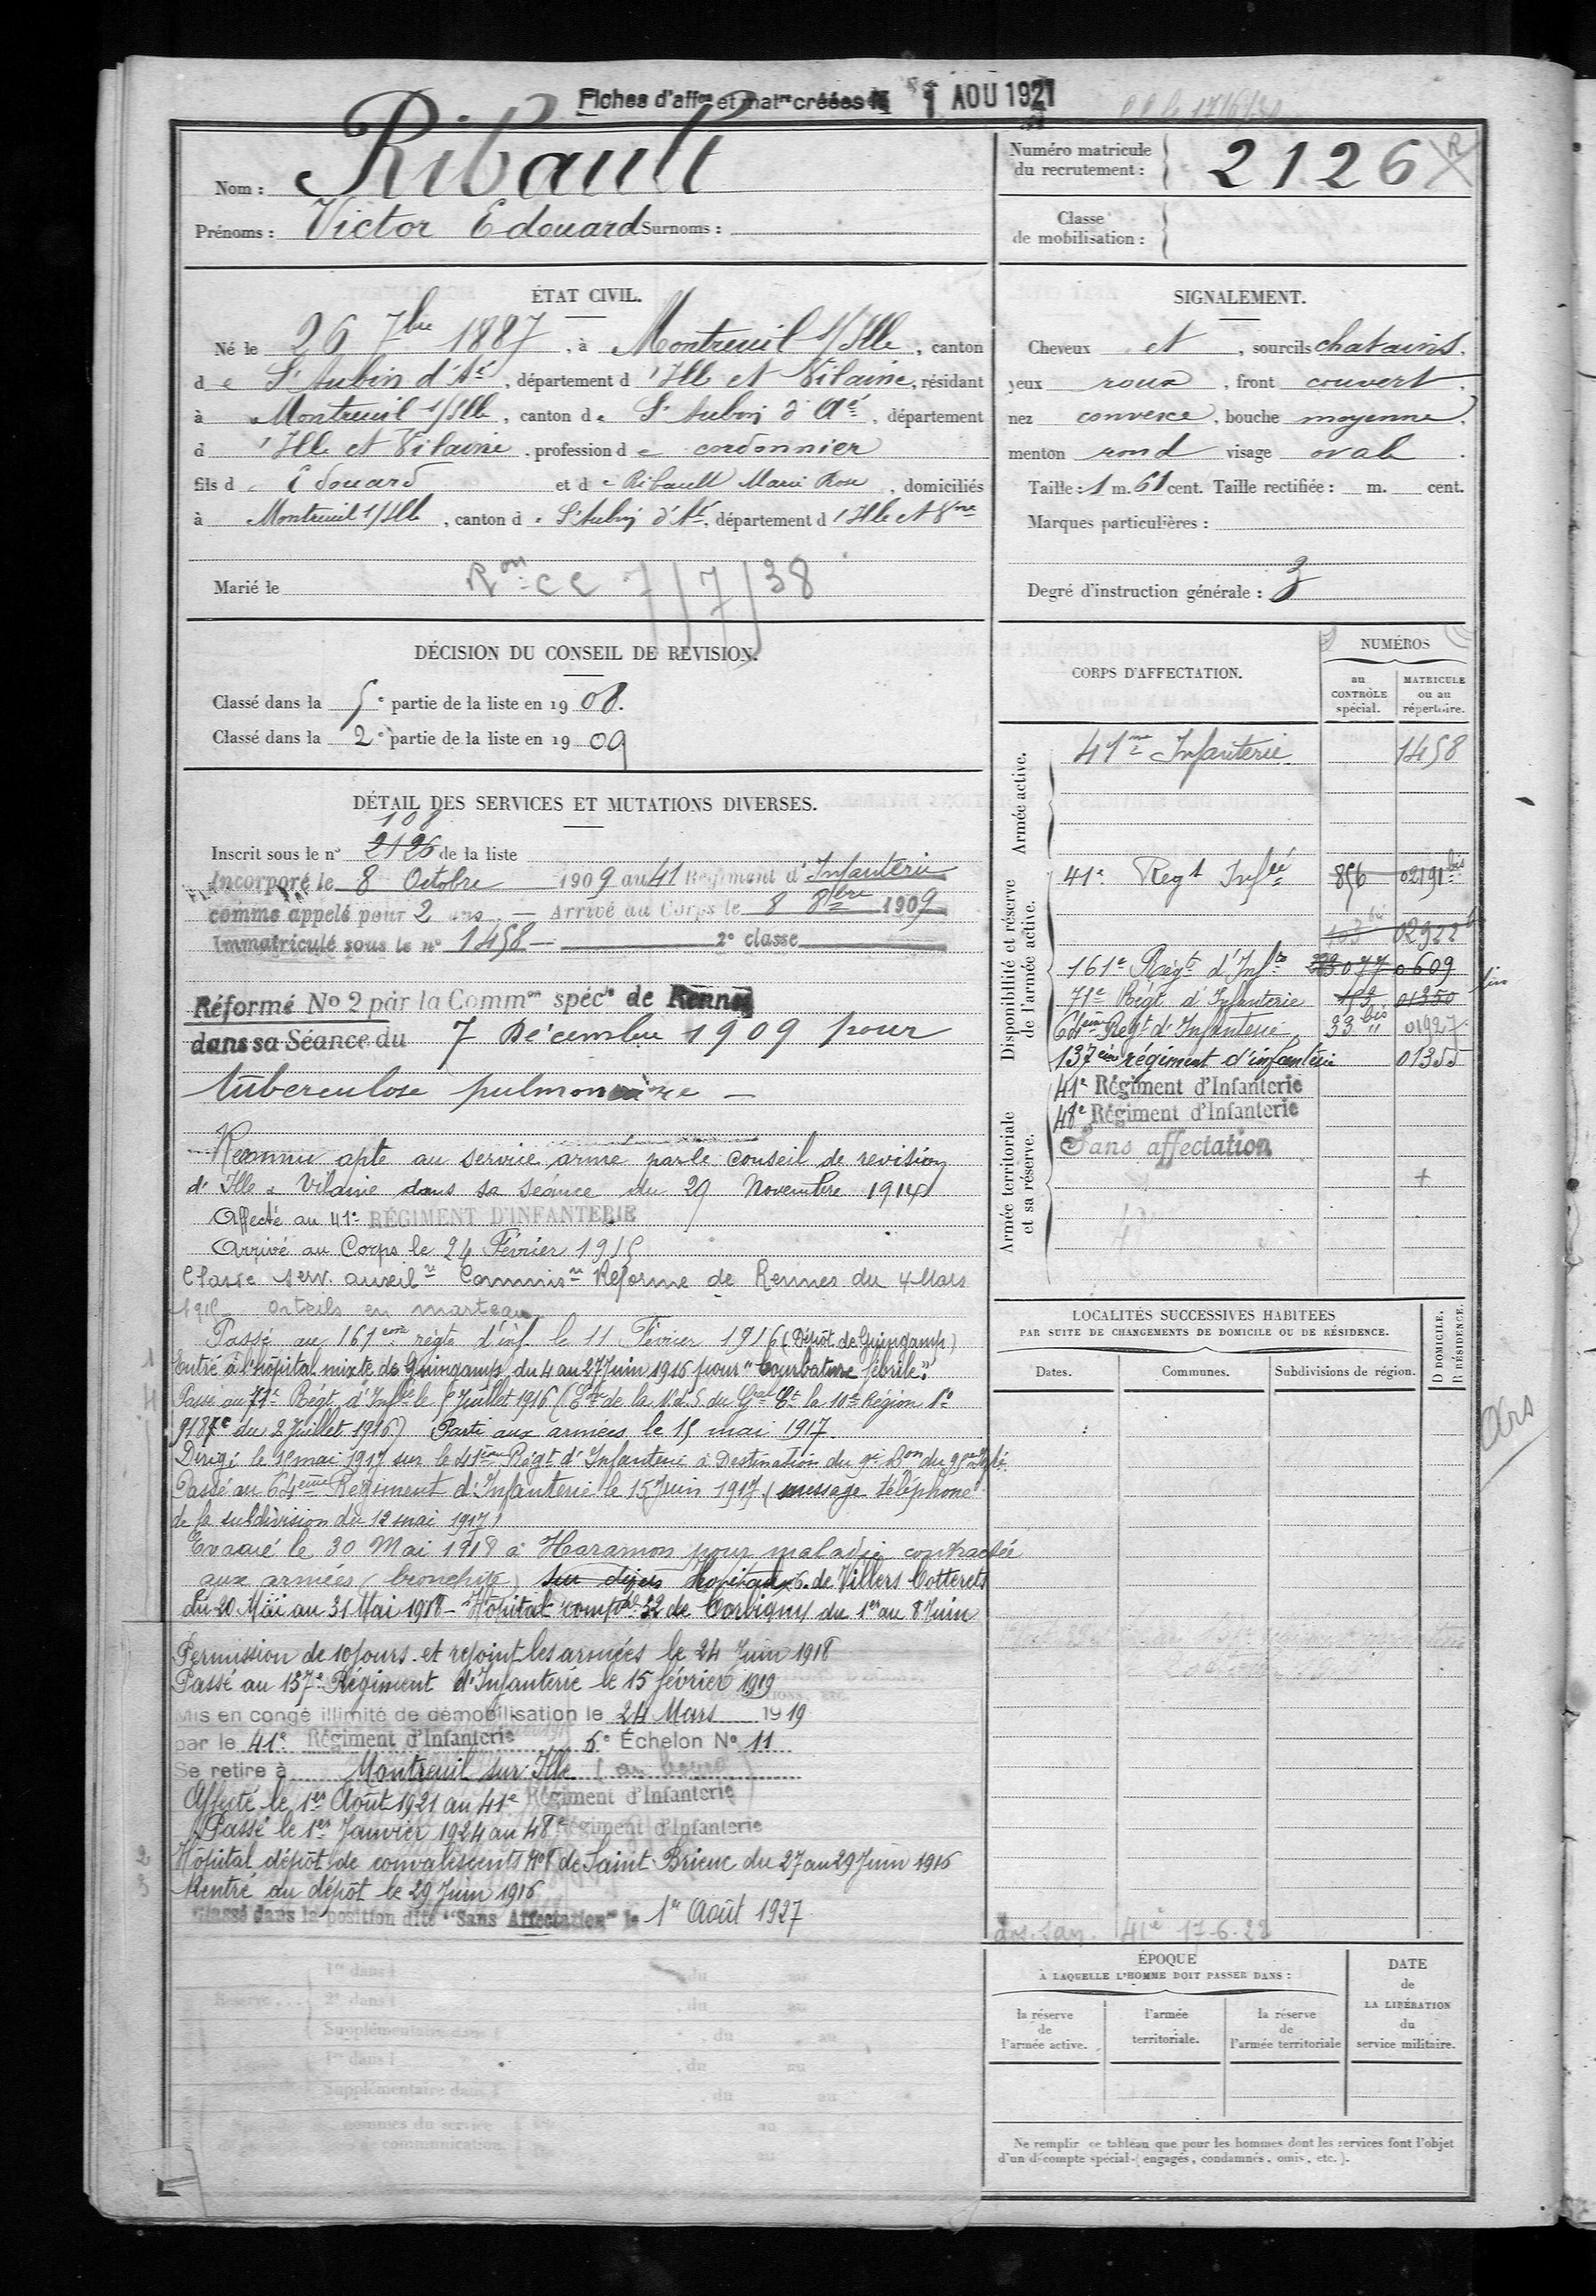 Fiches d'aff^on et mat^re créées le 1 AOU 1927
Nom : Ribault
Prénoms : Victor Edouard Surnoms :
Numéro matricule du recrutement : 2126
Classe de mobilisation :
ÉTAT CIVIL.
Né le 26 7bre 1887, à Montreuil s/Ille, canton
de St Aubin d'Aé, département d'Ille et Vilaine, résidant
à Montreuil s/Ille, canton de St Aubin d'Aé, département
d'Ille et Vilaine, profession de cordonnier
fils d'Edouard et de Ribault Marie Rose, domiciliés
à Montreuil s/Ille, canton de St Aubin d'Aé, département d'Ille et Vne
Marié le
Ron CC 7/7/38
SIGNALEMENT.
Cheveux et, sourcils chatains.
yeux roux, front couvert.
nez convexe, bouche moyenne.
menton rond visage ovale.
Taille : 1 m. 61 cent. Taille rectifiée : m. cent.
Marques particulières :
Degré d'instruction générale : 3
DÉCISION DU CONSEIL DE REVISION.
Classé dans la 5e partie de la liste en 1908.
Classé dans la 2e partie de la liste en 1909
DÉTAIL DES SERVICES ET MUTATIONS DIVERSES.
108
Inscrit sous le n° 2126 de la liste
Incorporé le 8 Octobre 1909 au 41 Régiment d'Infanterie
comme appelé pour 2 ans. — Arrivé au Corps le 8 8bre 1909
Immatriculé sous le n° 1458 — 2e classe
Réformé No 2 par la Common spécle de Rennes
dans sa Séance du 7 Décembre 1909 pour
tuberculose pulmonaire —
Reconnu apte au service armé par le conseil de revision
d'Ille & Vilaine dans sa séance du 29 Novembre 1914
Affecté au 41e RÉGIMENT D'INFANTERIE
Arrivé au Corps le 24 Février 1915
Classé serv. auxilre Commisn Réforme de Rennes du 4 Mars
1915 orteils en marteau
Passé au 161eme régt d'inf. le 11 Février 1916 (Dépôt de Guingamp)
Entré à l'hôpital mixte de Guingamp du 4 au 27 Juin 1916 pour "Courbature fébrile."
Passé au 71e Régt d'Infie le 5 Juillet 1916 ( de la N. d. S du Gal Ct la 10e Région No
9187c du 2 Juillet 1916) Parti aux armées le 15 mai 1917.
Dirigé le mai 1917 sur le 41ème Régt d'Infanterie à Destination du 9e Bon du
Passé au 64eme Régiment d'Infanterie le 15 Juin 1917 (message téléphoné
de la subdivision du 12 mai 1917)
Evacué le 30 Mai 1918 à Haramon pour maladie contractée
aux armées (bronchite) Hopital 6. de Villers-Cotterets
du 20 Mai au 31 Mai 1918 - Hôpital compre 32 de Corbigny du 1er au 8 Juin
Permission de 10 jours et rejoint les armées le 24 Juin 1918
Passé au 137e Régiment d'Infanterie le 15 février 1919
Mis en congé illimité de démobilisation le 24 Mars 1919
par le 41e Régiment d'Infanterie 5e Échelon No 11
Se retire à Montreuil sur Ille (au bourg)
Affecté le 1er Août 1921 au 41e Régiment d'Infanterie
Passé le 1er Janvier 1924 au 48e Régiment d'Infanterie
Hôpital dépôt de convalescents No 1 de Saint Brieuc du 27 au 29 Juin 1916
Rentré au dépôt le 29 Juin 1916
Classé dans la position dite "Sans Affectation" le 1er Août 1927
CORPS D'AFFECTATION.
NUMÉROS
au CONTRÔLE spécial.
MATRICULE ou au répertoire.
Armée active.
41me Infanterie 1458
Disponibilité et réserve de l'armée active.
41e Regt Infie 856 02191 bis
103 bis 02922
161e Régt d'Infie 0609
71e Régt d'Infanterie 01350
64ème Regt d'Infanterie 33 bis 01927
137ème régiment d'infanterie 01355
Armée territoriale et sa réserve.
41e Régiment d'Infanterie
48e Régiment d'Infanterie
Sans affectation
LOCALITÉS SUCCESSIVES HABITÉES
PAR SUITE DE CHANGEMENTS DE DOMICILE OU DE RÉSIDENCE.
D DOMICILE. R RÉSIDENCE.
Dates. Communes. Subdivisions de région.
Ars
41e 17-6-22
ÉPOQUE
À LAQUELLE L'HOMME DOIT PASSER DANS :
la réserve de l'armée active.
l'armée territoriale.
la réserve de l'armée territoriale
DATE de LA LIBÉRATION du service militaire.
Ne remplir ce tableau que pour les hommes dont les services font l'objet
d'un décompte spécial (engagés, condamnés, omis, etc.).